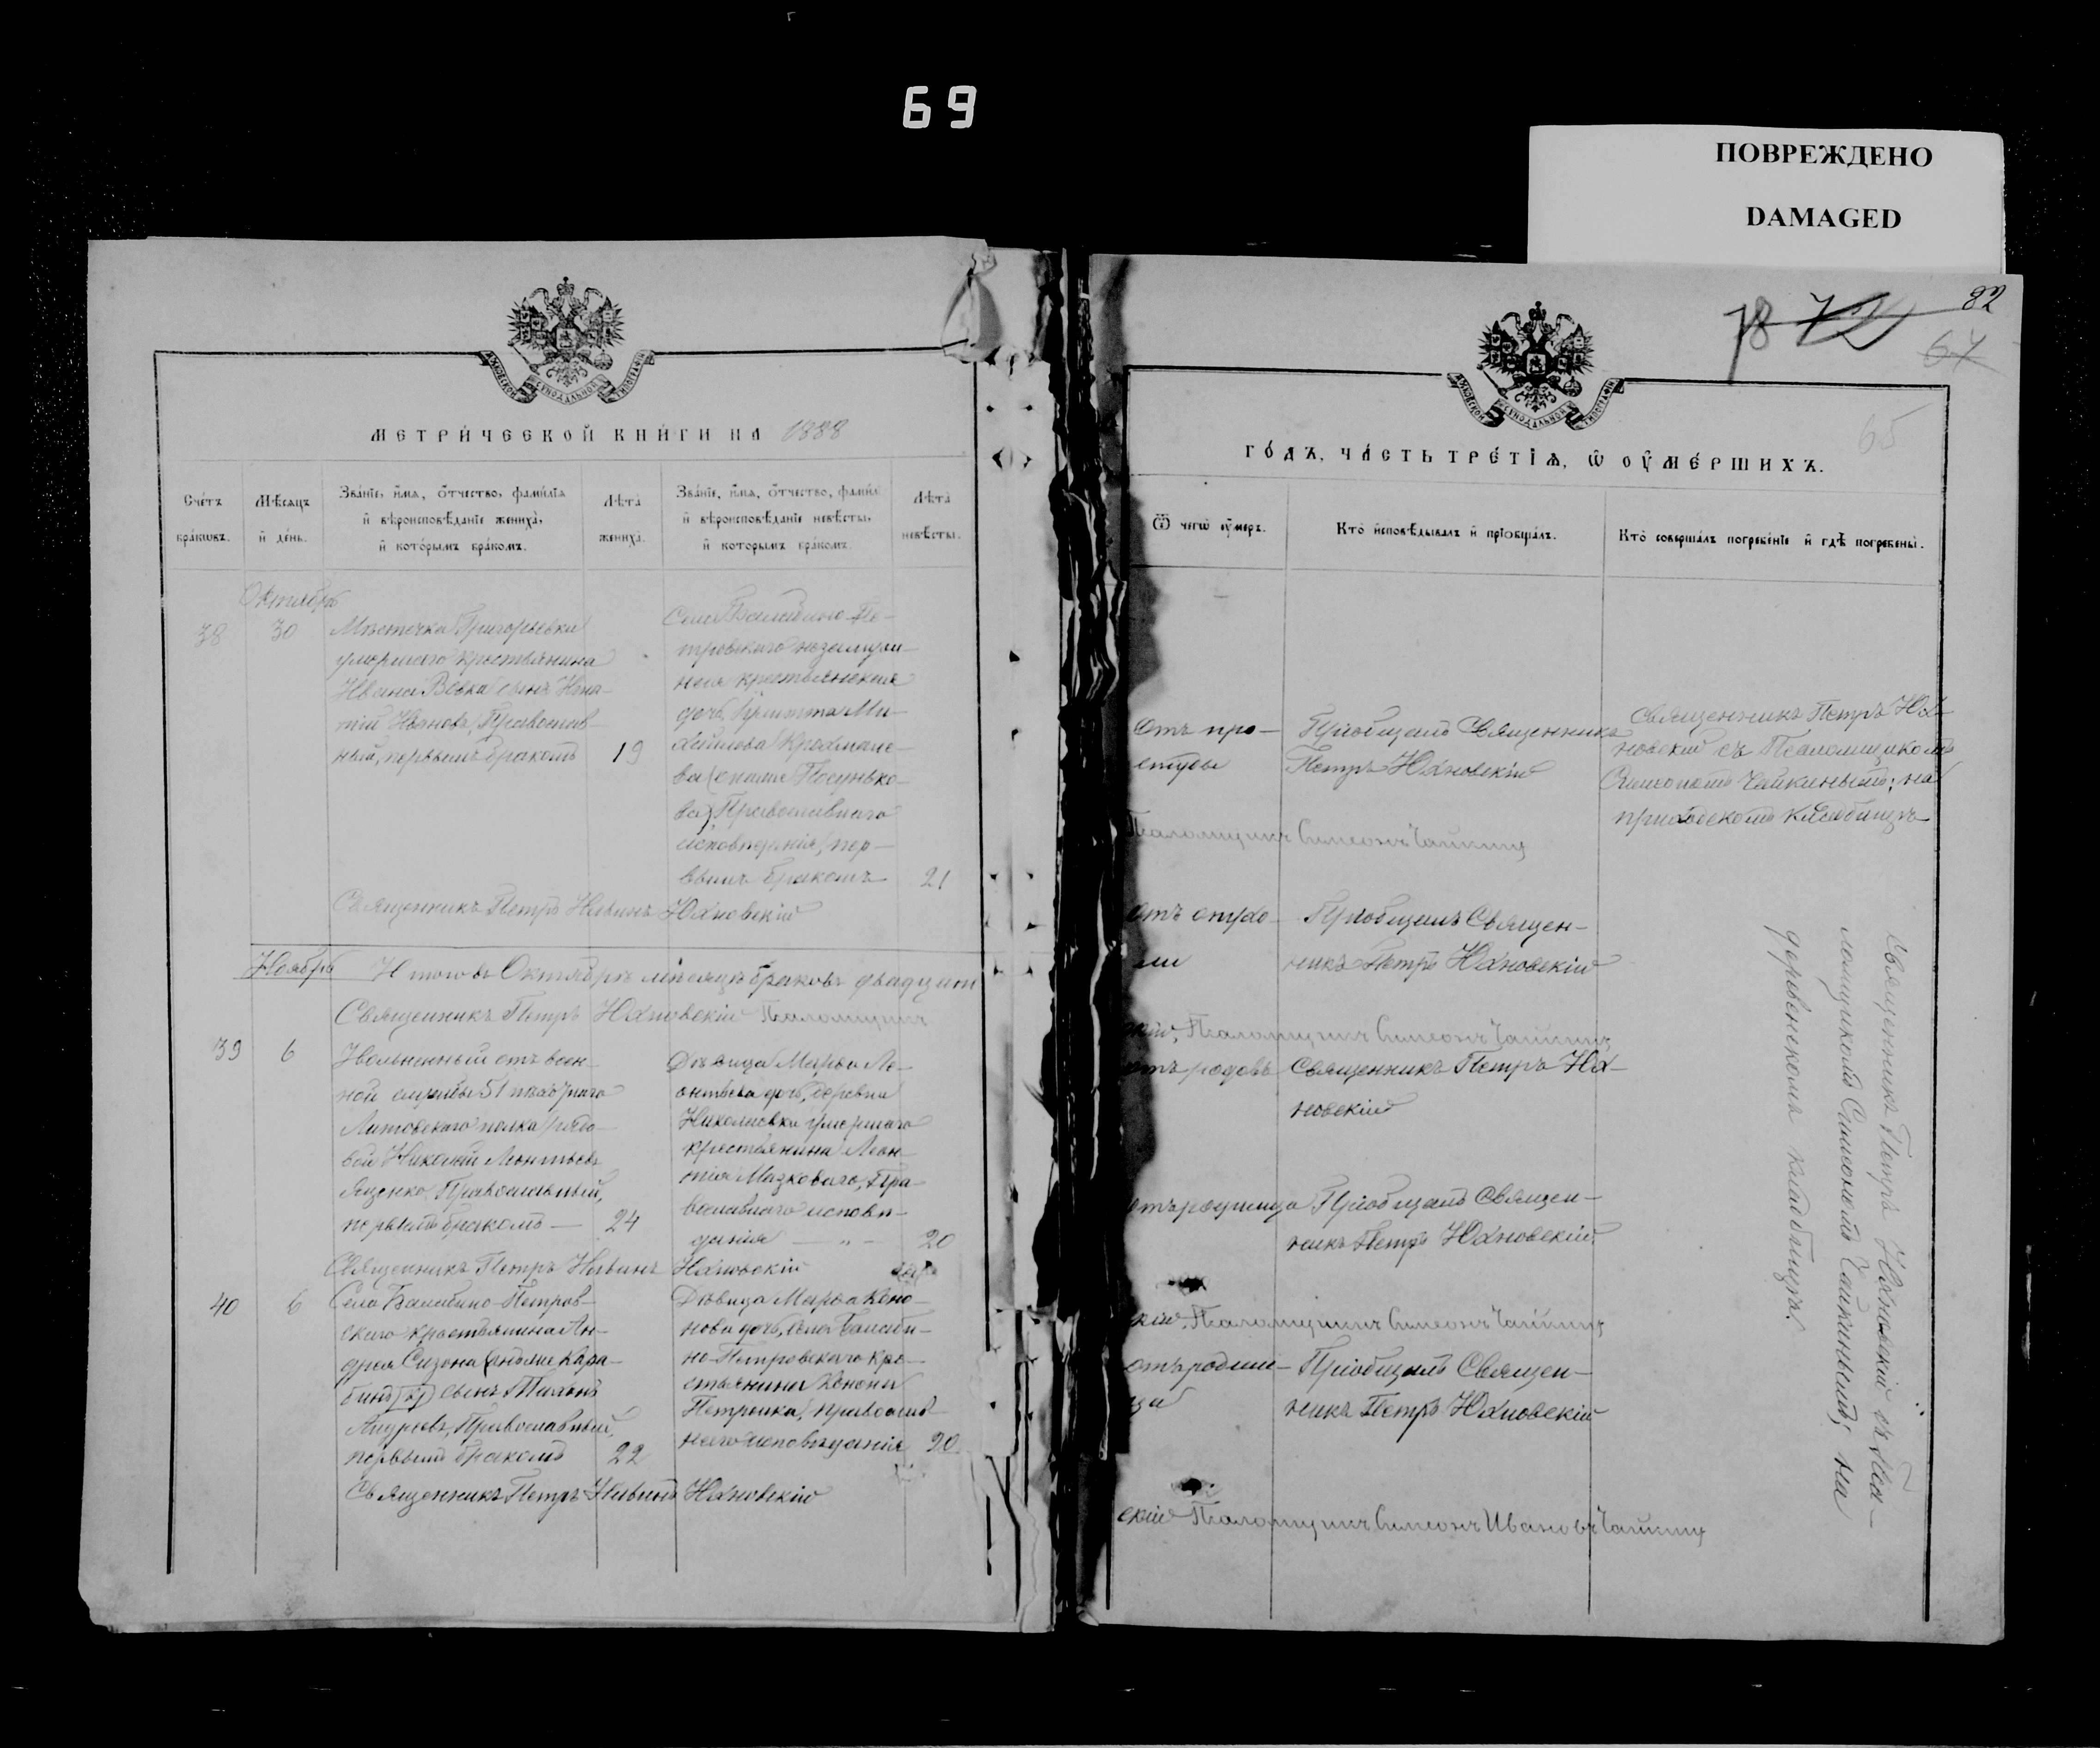 69
ПОВРЕЖДЕНО
DAMAGED
МЕТРИЧЕСКОЙ КНИГИ НА 1888
Счетъ браковъ.
Мѣсяцъ и день.
Званіе, имя, отчество, фамилія и вѣроисповѣданіе жениха, и которымъ бракомъ.
Лѣта жениха.
Званіе, имя, отчество, фамилія и вѣроисповѣданіе невѣсты, и которымъ бракомъ.
Лѣта невѣсты.
Октябрь
38
30
Мѣстечка Григорьевки
умершаго крестьянина
Ивана Вовка сынъ Игна-
тій Ивановъ, Православ
ный, первымъ бракомъ
19
Села Балабино-Пе-
тровскаго
крестьянская
дочь
ва)Православнаго
исповѣданія, пер-
вымъ бракомъ
21
Священникъ Петръ Юхновскій
Ноябрь
Итого въ Октябрѣ мѣсяцѣ браковъ двадцать
Священникъ Петръ Юхновскій Псаломщикъ
39
6
Уволенный отъ воен-
ной службы 51 пѣхотнаго
Литовскаго полка рядо-
вой Николай Леонтьевъ
Яценко, Православный,
первымъ бракомъ —
24
Дѣвица Марѳа Ле-
онтьева дочь, деревни
Николаевки умершаго
крестьянина Леон-
тія Мазковаго, Пра-
вославнаго исповѣ-
данія — „ —
20
Священникъ Петръ Юхновскій
40
6
Села Балабино-Петров-
скаго крестьянина Ан-
дрея Сизона (онъ же Кара-
бинъ) сынъ Тихонъ
Андреевъ, Православный,
первымъ бракомъ
22
Дѣвица Марѳа Коно-
нова дочь, села Балаби-
но-Петровскаго кре-
стьянина Конона
Петренка, православ
наго исповѣданія
20
Священникъ Петръ Юхновскій
78 72 82
64
65
ГОДЪ, ЧАСТЬ ТРЕТІЯ, Ѿ ОУМЕРШИХЪ.
Ѿ чегѡ оумеръ.
Кто исповѣдывалъ и пріобщалъ.
Кто совершалъ погребеніе и гдѣ погребены.
Отъ про-
студы
Пріобщалъ Священникъ
Петръ Юхновскій
Священникъ Петръ Юх-
новскій съ Псаломщикомъ
Симеономъ Чайкинымъ; на
приходскомъ кладбищѣ
Псаломщикъ Симеонъ Чайкинъ
Пріобщалъ Священ-
никъ Петръ Юхновскій
скій, Псаломщикъ Симеонъ Чайкинъ
отъ родовъ
Священникъ Петръ Юх-
новскій
отъ родимца
Пріобщалъ Священ-
никъ Петръ Юхновскій
скій, Псаломщикъ Симеонъ Чайкинъ
отъ родим-
ца
Пріобщалъ Священ-
никъ Петръ Юхновскій
скій Псаломщикъ Симеонъ Ивановъ Чайкинъ
Священникъ Петръ Юхновскій съ Пса-
ломщикомъ Симеономъ Чайкинымъ; на
деревенскомъ кладбищѣ.